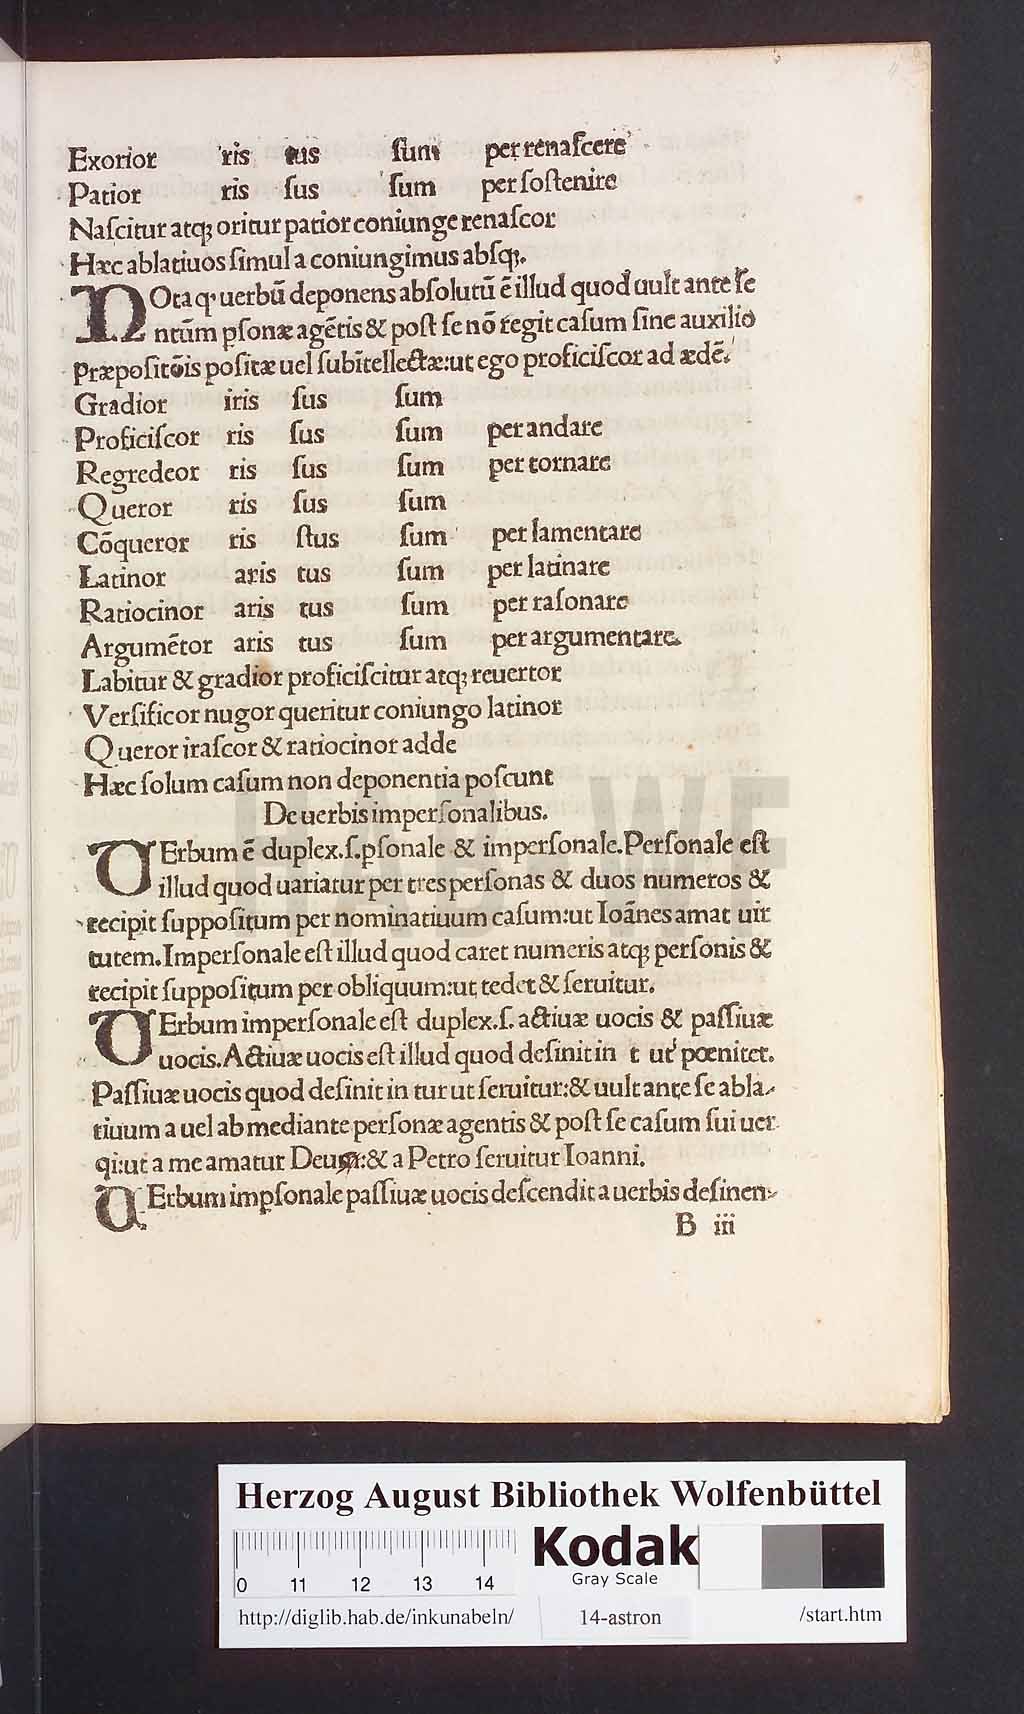 Exorior ris tus ſum per renaſcere
Patior ris ſus ſum per ſoſtenire
Naſcitur atqꝫ oritur patior coniunge renaſcor
Hæc ablatiuos ſimul a coniungimus abſqꝫ.
NOta qꝰ uerbũ deponens abſolutũ ẽ illud quod uult ante ſe
ntũm pſonæ agẽtis & poſt ſe nõ regit caſum ſine auxilio
præpoſitõis poſitæ uel ſubĩtellectæ:ut ego proficiſcor ad ædẽ.
Gradior iris ſus ſum
Proficiſcor ris ſus ſum per andare
Regredeor ris ſus ſum per tornare
Queror ris ſus ſum
Cõqueror ris ſtus ſum per lamentare
Latinor aris tus ſum per latinare
Ratiocinor aris tus ſum per raſonare
Argumẽtor aris tus ſum per argumentare.
Labitur & gradior proficiſcitur atqꝫ reuertor
Verſificor nugor queritur coniungo latinor
Queror iraſcor & ratiocinor adde
Hæc ſolum caſum non deponentia poſcunt
De uerbis imperſonalibus.
VErbum ẽ duplex.ſ.ꝑſonale & imperſonale.Perſonale eſt
illud quod uariatur per tres perſonas & duos numeros &
recipit ſuppoſitum per nominatiuum caſum:ut Ioãnes amat uir
tutem.Imperſonale eſt illud quod caret numeris atqꝫ perſonis &
recipit ſuppoſitum per obliquum:ut tedet & ſeruitur.
VErbum imperſonale eſt duplex.ſ. actiuæ uocis & paſſiuæ
uocis.Actiuæ uocis eſt illud quod deſinit in t ut pœnitet.
Paſſiuæ uocis quod deſinit in tur ut ſeruitur:& uult ante ſe abla-
tiuum a uel ab mediante perſonæ agentis & poſt ſe caſum ſui uer
qi:ut a me amatur Deum:& a Petro ſeruitur Ioanni.
VErbum impſonale paſſiuæ uocis deſcendit a uerbis deſinen-
B iii
HAB WF
Herzog August Bibliothek Wolfenbüttel
0 11 12 13 14
Kodak
Gray Scale
http://diglib.hab.de/inkunabeln/ 14-astron /start.htm